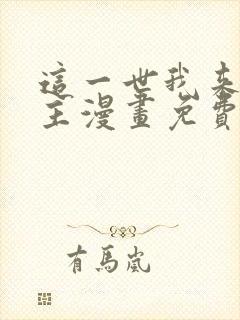 這一世我來
主漫畫免費
有馬嵐